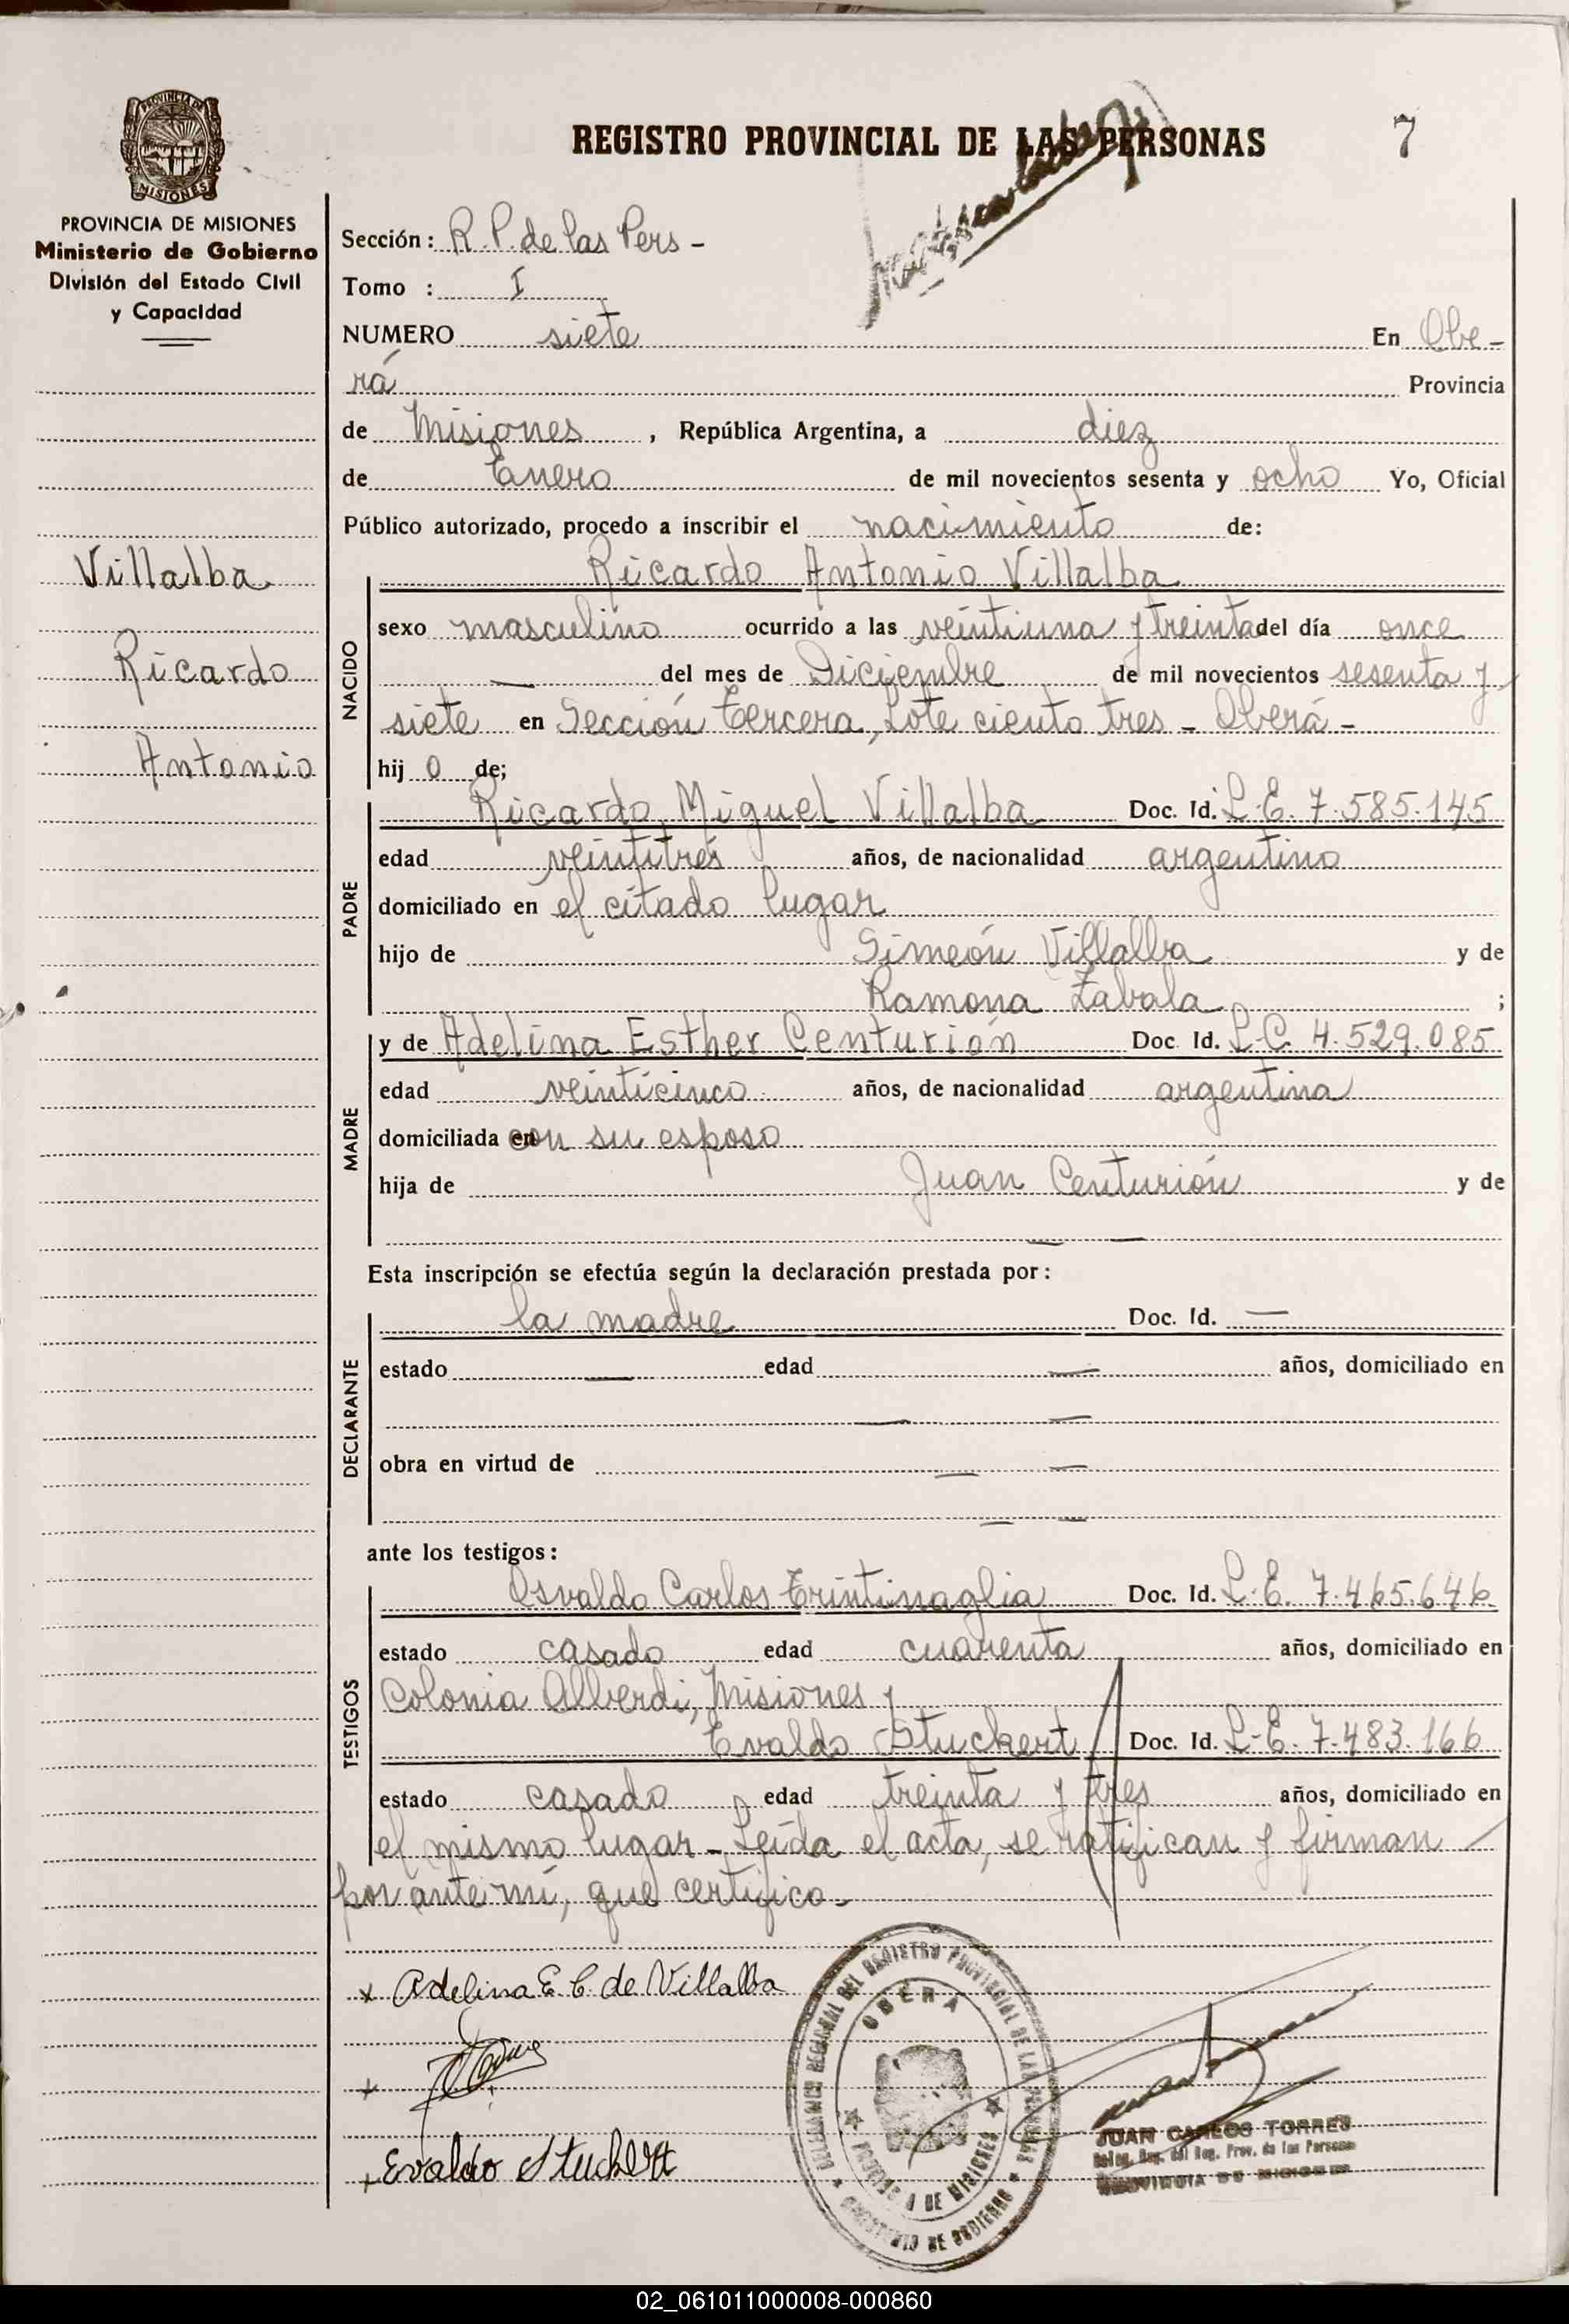 REGISTRO PROVINCIAL DE LAS PERSONAS
7
PROVINCIA DE MISIONES
PROVINCIA DE MISIONES
Ministerio de Gobierno
División del Estado Civil
y Capacidad
Villalba
Ricardo
Antonio
Sección: R. P. de las Pers -
Tomo : I
NUMERO siete En Obe-
rá Provincia
de Misiones, República Argentina, a diez
de Enero de mil novecientos sesenta y ocho Yo, Oficial
Público autorizado, procedo a inscribir el nacimiento de:
Ricardo Antonio Villalba
NACIDO
sexo masculino ocurrido a las veintiuna y treinta del día once
— del mes de Diciembre de mil novecientos sesenta y
siete en Sección Tercera, Lote ciento tres - Oberá -
hij o de;
PADRE
Ricardo Miguel Villalba Doc. Id. L.E. 7.585.145
edad veintitrés años, de nacionalidad argentino
domiciliado en el citado lugar
hijo de Simeón Villalba y de
Ramona Zabala ;
MADRE
y de Adelina Esther Centurión Doc. Id. L.C. 4.529.085
edad veinticinco años, de nacionalidad argentina
domiciliada en con su esposo
hija de Juan Centurión y de
— —
Esta inscripción se efectúa según la declaración prestada por:
DECLARANTE
la madre Doc. Id. —
estado — edad — años, domiciliado en
— —
obra en virtud de — —
— —
ante los testigos:
TESTIGOS
Osvaldo Carlos Trintinaglia Doc. Id. L.E. 7.465.646
estado casado edad cuarenta años, domiciliado en
Colonia Alberdi, Misiones y
Evaldo Stuckert Doc. Id. L.E. 7.483.166
estado casado edad treinta y tres años, domiciliado en
el mismo lugar - Leída el acta, se ratifican y firman
por ante mí, que certifico -
x Adelina E. C. de Villalba
x
x Evaldo Stuckert
DELEGACION REGIONAL DEL REGISTRO PROVINCIAL DE LAS PERSONAS
OBERA
PROVINCIA DE MISIONES
MINISTERIO DE GOBIERNO
JUAN CARLOS TORRES
Deleg. Reg. del Reg. Prov. de las Personas
PROVINCIA DE MISIONES
02_061011000008-000860